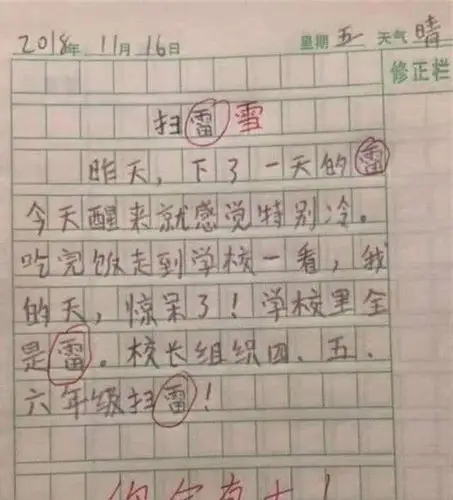 2018年 11月 16日 星期 五 天气 晴
修正栏
扫雷 雪
昨天,下了一天的雷
今天醒来就感觉特别冷。
吃完饭走到学校一看,我
的天,惊呆了!学校里全
是雷。校长组织四、五、
六年级扫雷!